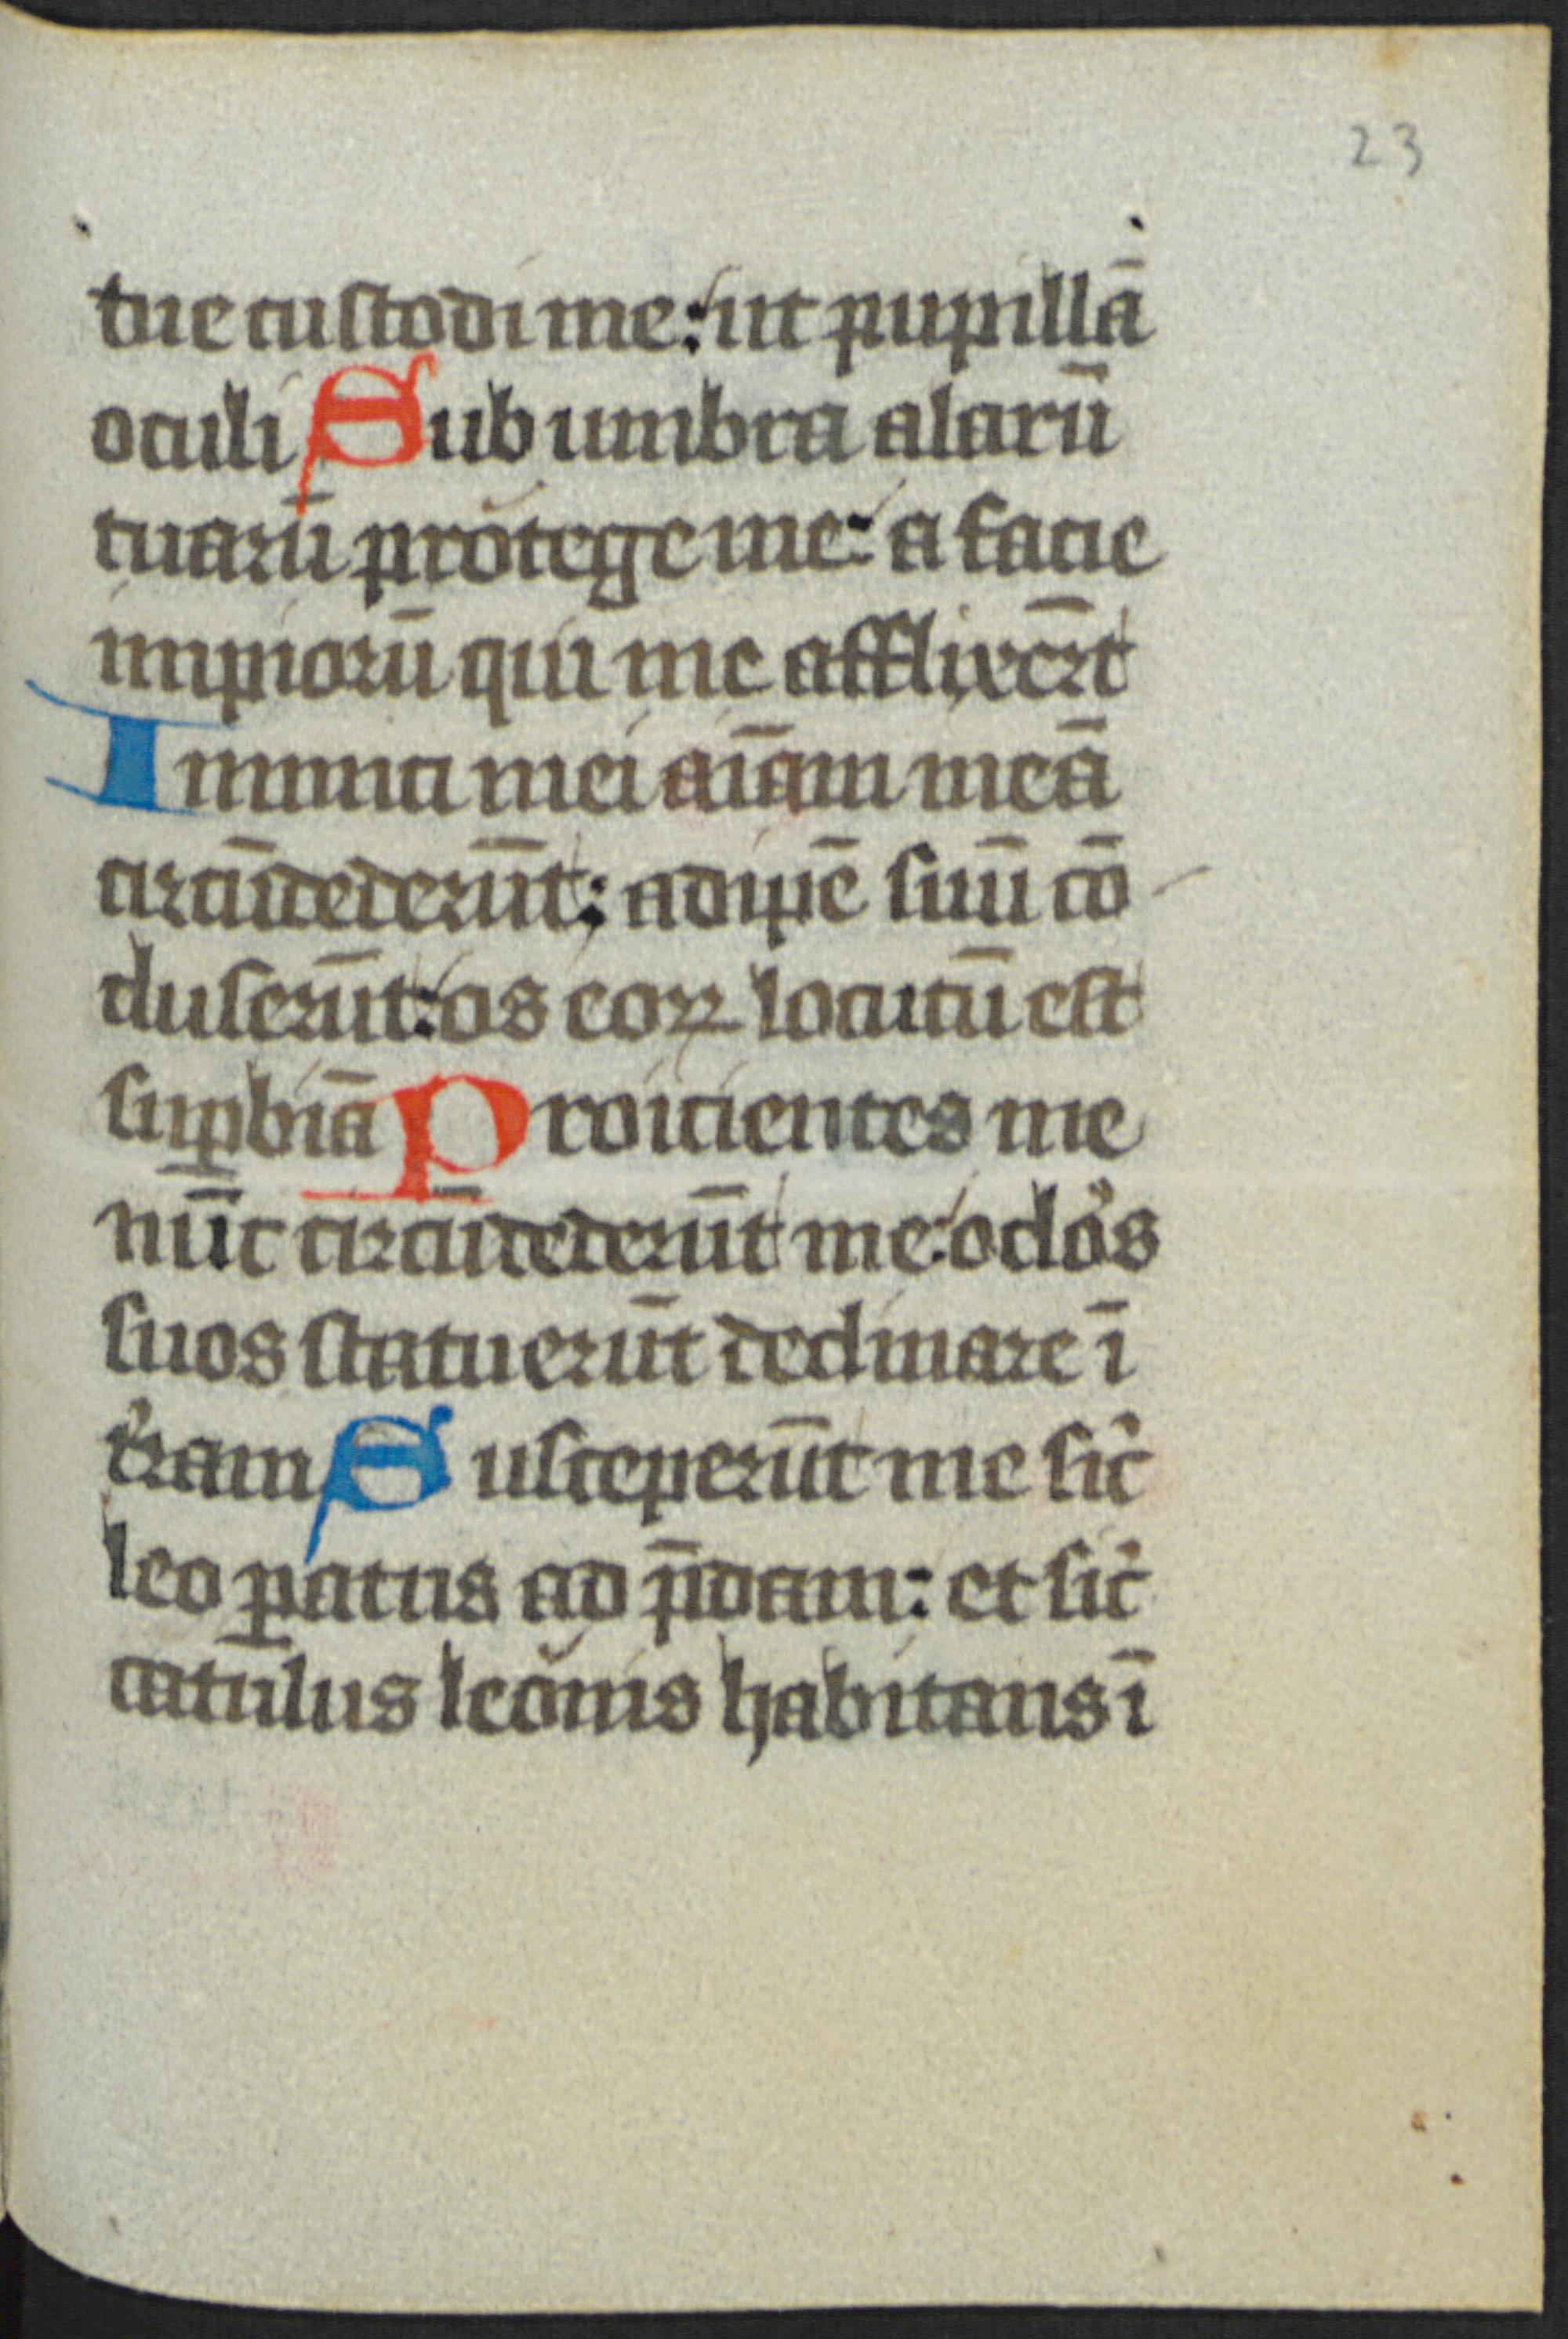 23
tue custodi me: ut pupillā
oculi Sub umbra alarū
tuarū protege me: a facie
impiorū qui me afflixer̄t
Inimici mei aīam meā
circūdederūt: adipē suū cō-
cluserūt: os eoꝝ locutū est
suꝑbiā Proicientes me
nūc circūdederūt me: oclo᷒s
suos statuerūt declinare ī
t̾ram Susceperūt me sic̾
leo ꝑatus ad p̄dam: et sic̾
catulus leonis habitans ī